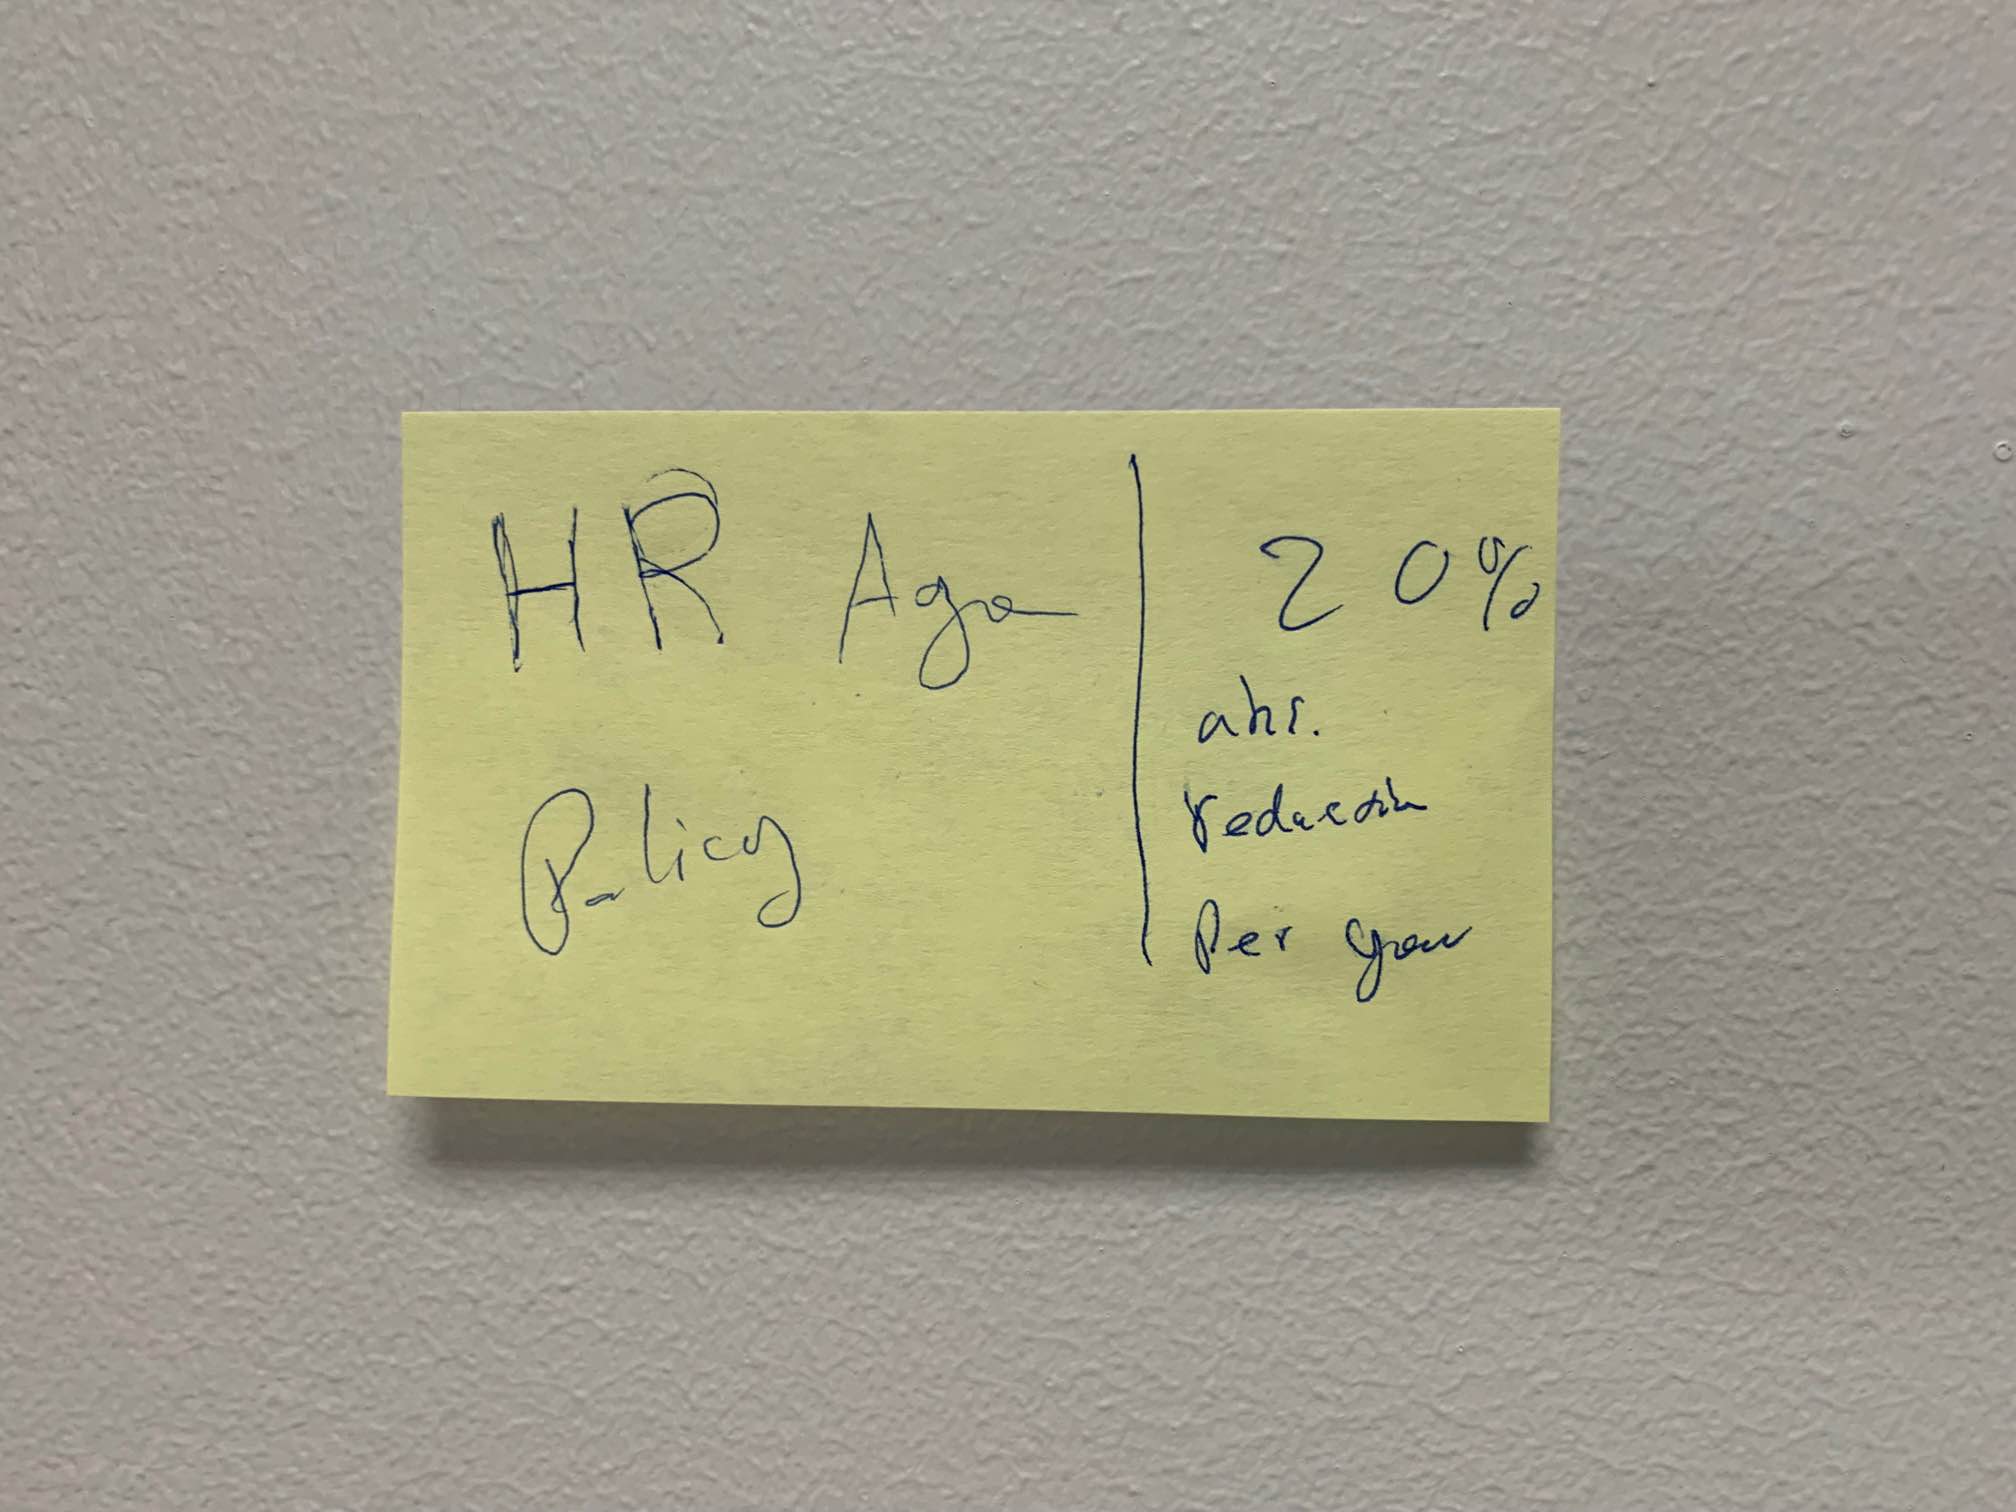 HR
Policy
20%
abs.
reduction
Per year